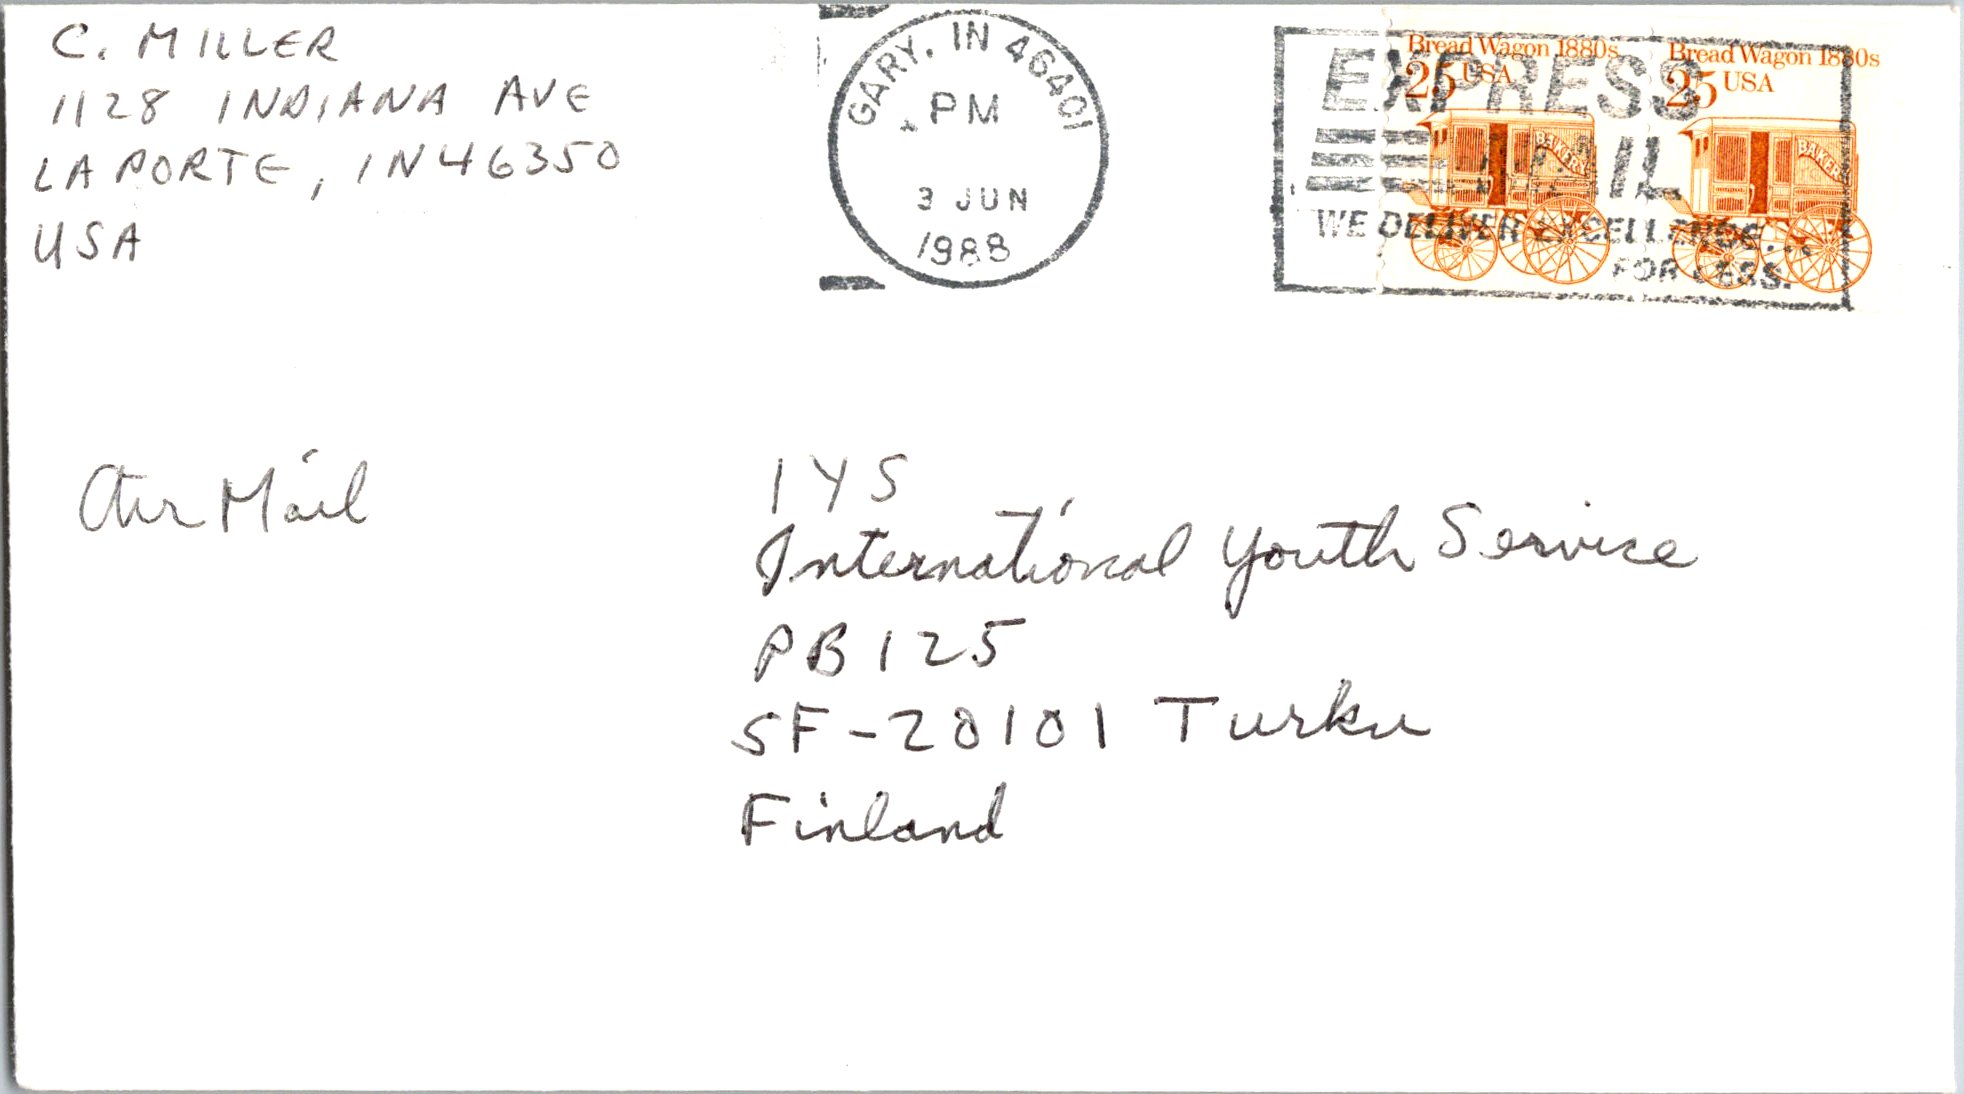 C. MILLER
1128 INDIANA AVE
LA PORTE, IN 46350
USA
GARY, IN 46401
PM
3 JUN
1988
Bread Wagon 1880s
25 USA
BAKERY
Bread Wagon 1880s
25 USA
BAKERY
EXPRESS
MAIL
WE DELIVER EXCELLENCE...
FOR LESS.
Air Mail
IYS
International Youth Service
PB 125
SF-20101 Turku
Finland